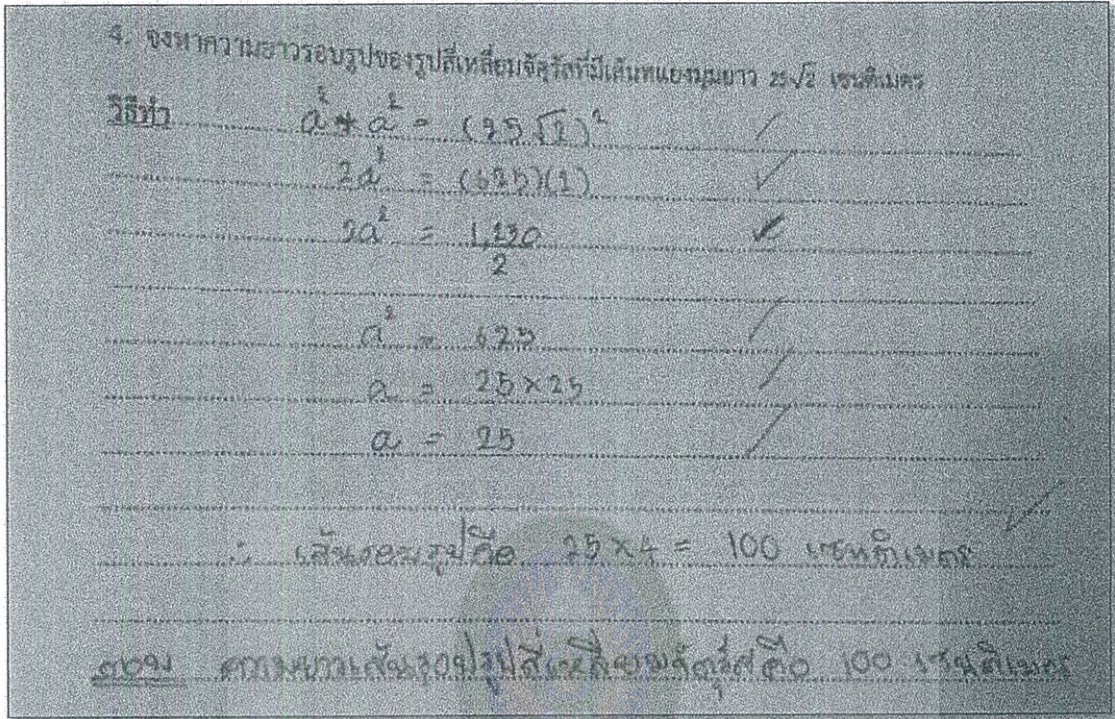 4. จงหาความยาวรอบรูปของรูปสี่เหลี่ยมจัตุรัสที่มีเส้นทแยงมุมยาว 25√2 เซนติเมตร
วิธีทำ a² + a² = (25√2)²
2a² = (625)(2)
2a² = 1,250
2
a² = 625
a = 25 × 25
a = 25
∴ เส้นรอบรูปคือ 25 × 4 = 100 เซนติเมตร
ตอบ ความยาวเส้นรอบรูปสี่เหลี่ยมจัตุรัสคือ 100 เซนติเมตร